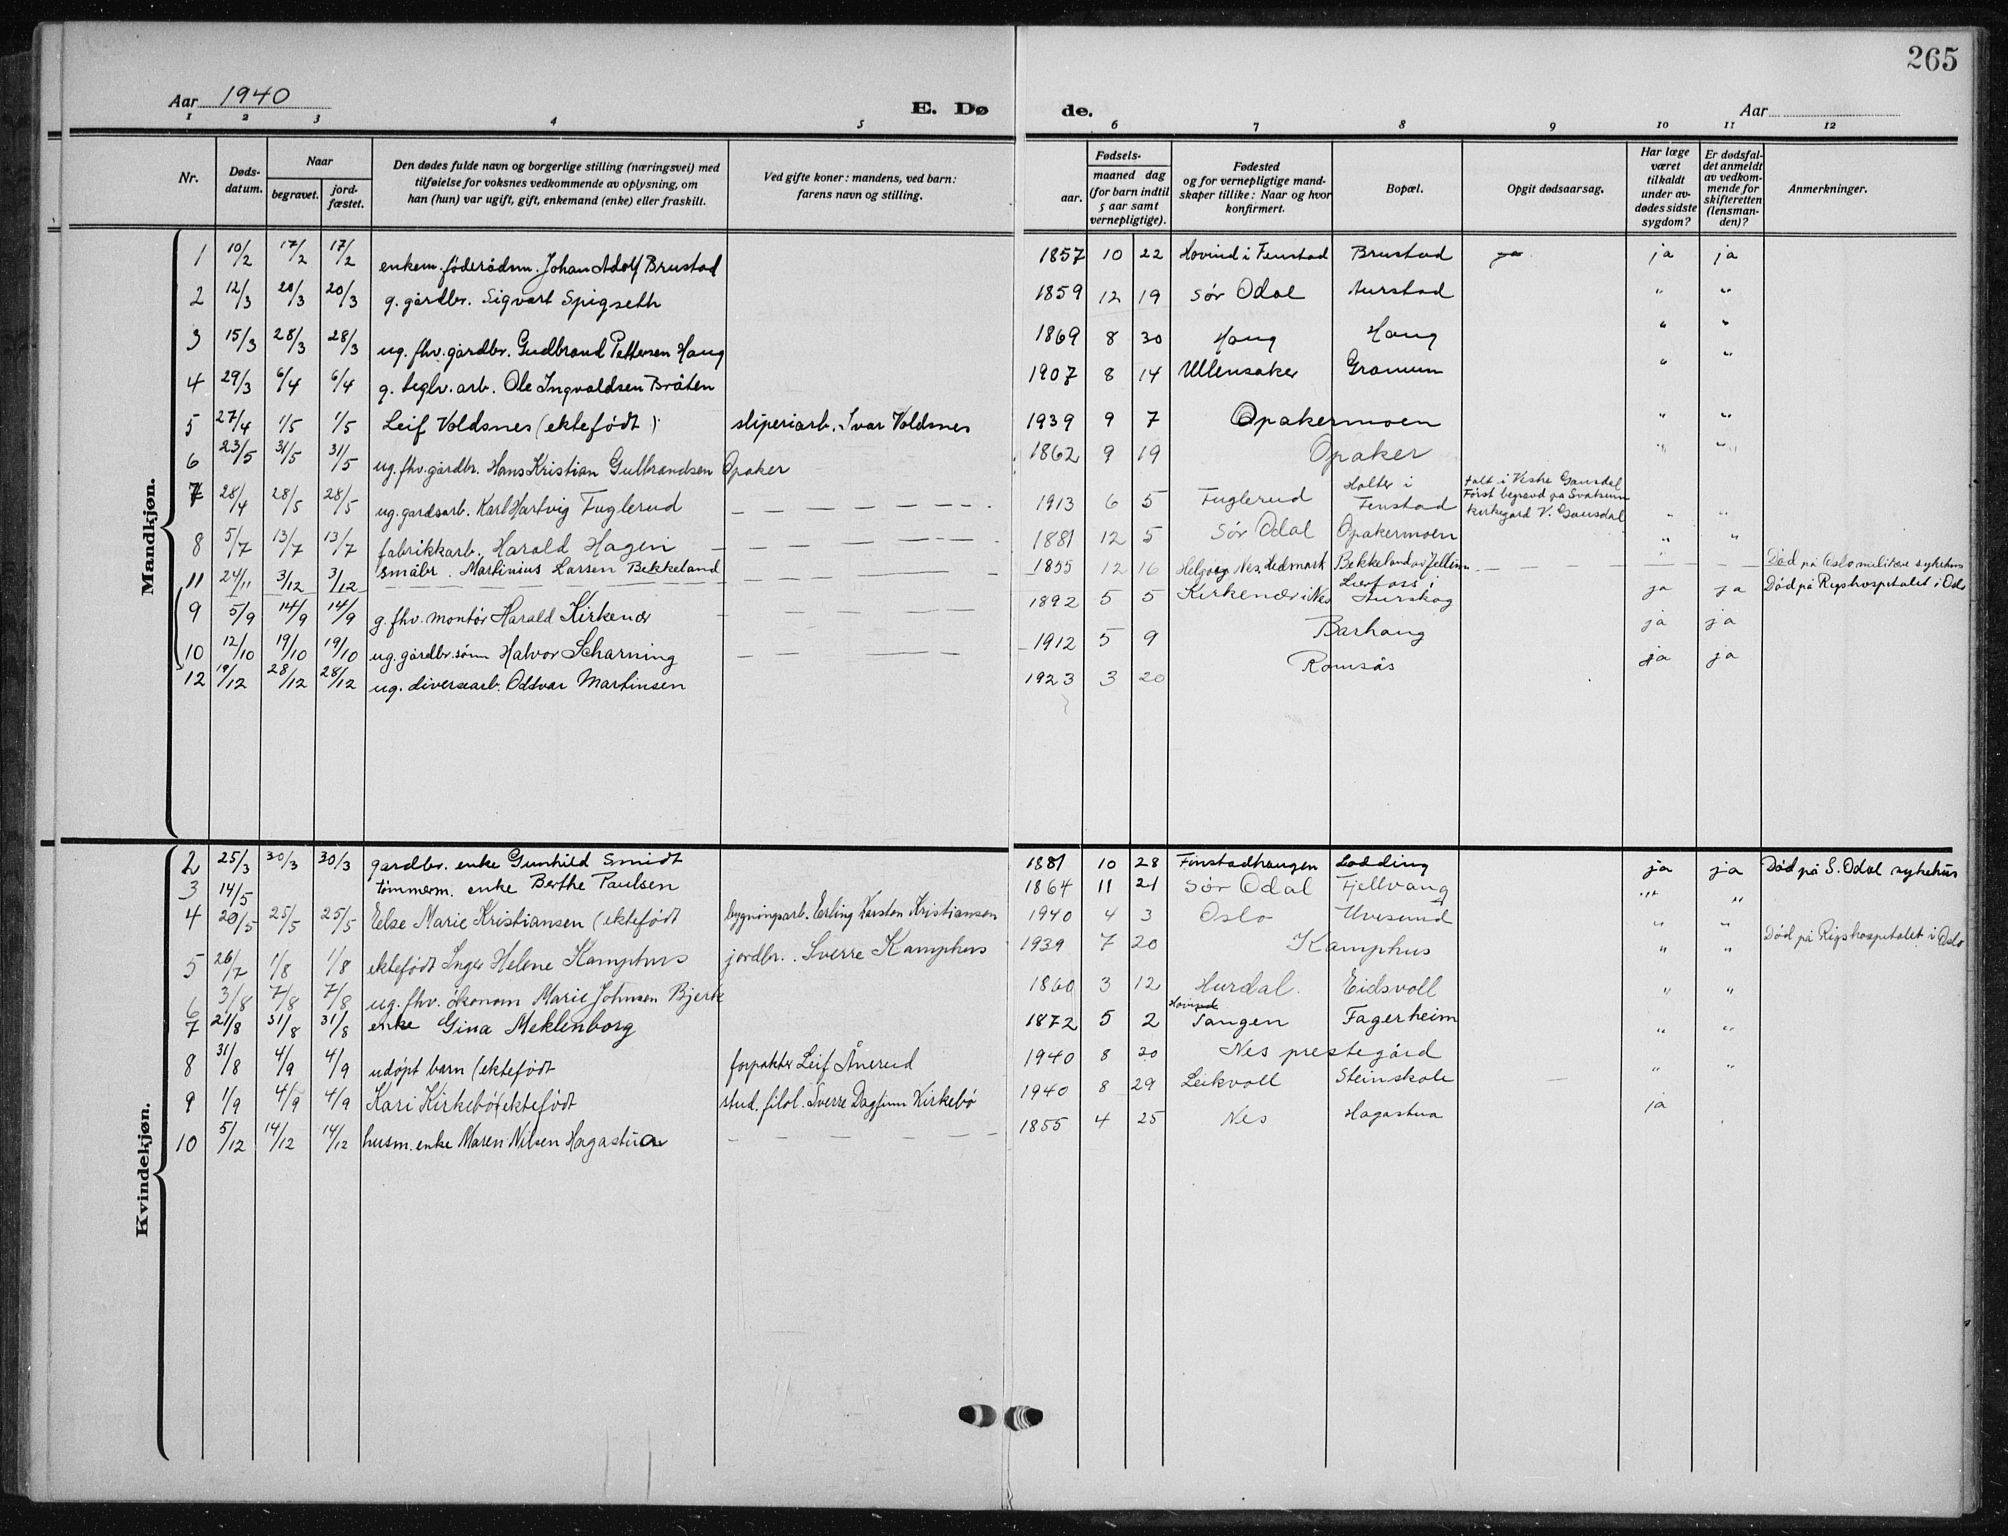 265
Aar 1940
E. Dø
de.
Aar
1 2 3 4 5
6 7 8 9 10 11 12
Nr.
Døds-
datum.
Naar
begravet.
jord-
fæstet.
Den dødes fulde navn og borgerlige stilling (næringsvei) med
tilføielse for voksnes vedkommende av oplysning, om
han (hun) var ugift, gift, enkemand (enke) eller fraskilt.
Ved gifte koner: mandens, ved barn:
farens navn og stilling.
Fødsels-
aar.
maaned dag
(for barn indtil
5 aar samt
vernepligtige).
Fødested
og for vernepligtige mand-
skaper tillike: Naar og hvor
konfirmert.
Bopæl.
Opgit dødsaarsag.
Har læge
været
tilkaldt
under av-
dødes sidste
sygdom?
Er dødsfal-
det anmeldt
av vedkom-
mende for
skifteretten
(lensman-
den)?
Anmerkninger.
Mandkjøn.
1 10/2 17/2 17/2 enkem. føderådsm. Johan Adolf Brustad 1857 10 22 Hovind i Fenstad Brustad ja ja ja
2 12/3 20/3 20/3 g. gårdbr. Sigvart Spigseth 1859 12 19 Sør Odal Aurstad " "
3 15/3 28/3 28/3 ug. fhv. gårdbr. Gudbrand Pettersen Haug 1869 8 30 Haug Haug " "
4 29/3 6/4 6/4 g. teglv. arb. Ole Ingvaldsen Bråten 1907 8 14 Ullensaker Gramum " "
5 27/4 1/5 1/5 Leif Voldsnes (ektefødt) sliperiarb. Ivar Voldsnes 1939 9 7 Opakermoen " "
6 23/5 31/5 31/5 ug. fhv. gårdbr. Hans Kristian Gulbrandsen Opaker 1862 9 19 Opaker " "
7 28/4 28/5 28/5 ug. gårdsarb. Karl Hartvig Fuglerud 1913 6 5 Fuglerud Holter i Fenstad falt i Vestre Gausdal
Først begravd på Svatsum
kirkegård V. Gausdal " "
8 5/7 13/7 13/7 fabrikkarb. Harald Hagen 1881 12 5 Sør Odal Opakermoen " "
11 24/11 3/12 3/12 småbr. Martinius Larsen Bekkeland 1855 12 16 Helgøya Nes, Hedmark Bekkeland " Død på Oslo militære sykehus
9 5/9 14/9 14/9 g. fhv. montør Harald Kirkenær 1892 5 5 Kirkenær i Nes Lierfoss i Aurskog ja ja Død på Rigshospitalet i Oslo
10 12/10 19/10 19/10 ug. gårdbr. sønn Halvor Scharning 1912 5 9 Barhaug ja ja
12 19/12 28/12 28/12 ug. diversearb. Oddvar Martinsen 1923 3 20 Romsås ja ja
Kvindekjøn.
2 25/3 30/3 30/3 gardbr. enke Gunhild Smidt 1881 10 28 Finstadhaugen Lodding ja ja Død på S. Odal sykehus
3 14/5 tømmerm. enke Berthe Paulsen 1864 11 21 Sør Odal Fjellvang " "
4 20/5 25/5 25/5 Else Marie Kristiansen (ektefødt bygningsarb. Erling Karsten Kristiansen 1940 4 3 Oslo Uvesund " "
5 26/7 1/8 1/8 ektefødt Inger Helene Kamphus jordbr. Sverre Kamphus 1939 7 20 Kamphus " " Død på Rigshospitalet i Oslo
6 3/8 7/8 7/8 ug. fhv. økonom Marie Johnsen Bjerk 1860 3 12 Hurdal. Eidsvoll " "
7 21/8 31/8 31/8 enke Gina Meklenborg 1872 5 2 Hovind Tangen Fagerheim " "
8 31/8 4/9 4/9 udøpt barn (ektefødt forpakter Leif Ånerud 1940 8 20 Nes prestegård " "
9 1/9 4/9 4/9 Kari Kirkebø (ektefødt stud. filol. Sverre Dagfinn Kirkebø 1940 8 29 Leikvoll Steinskole ja
10 5/12 14/12 14/12 husm. enke Maren Nilsen Hagastua 1855 4 25 Nes Hagastua